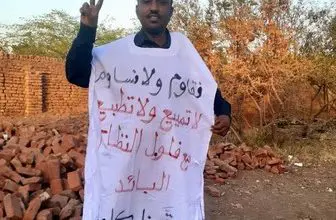 فقاوم ولا فساوم
لا تمييع ولا تطبيع
مع فلول النظام
البائد